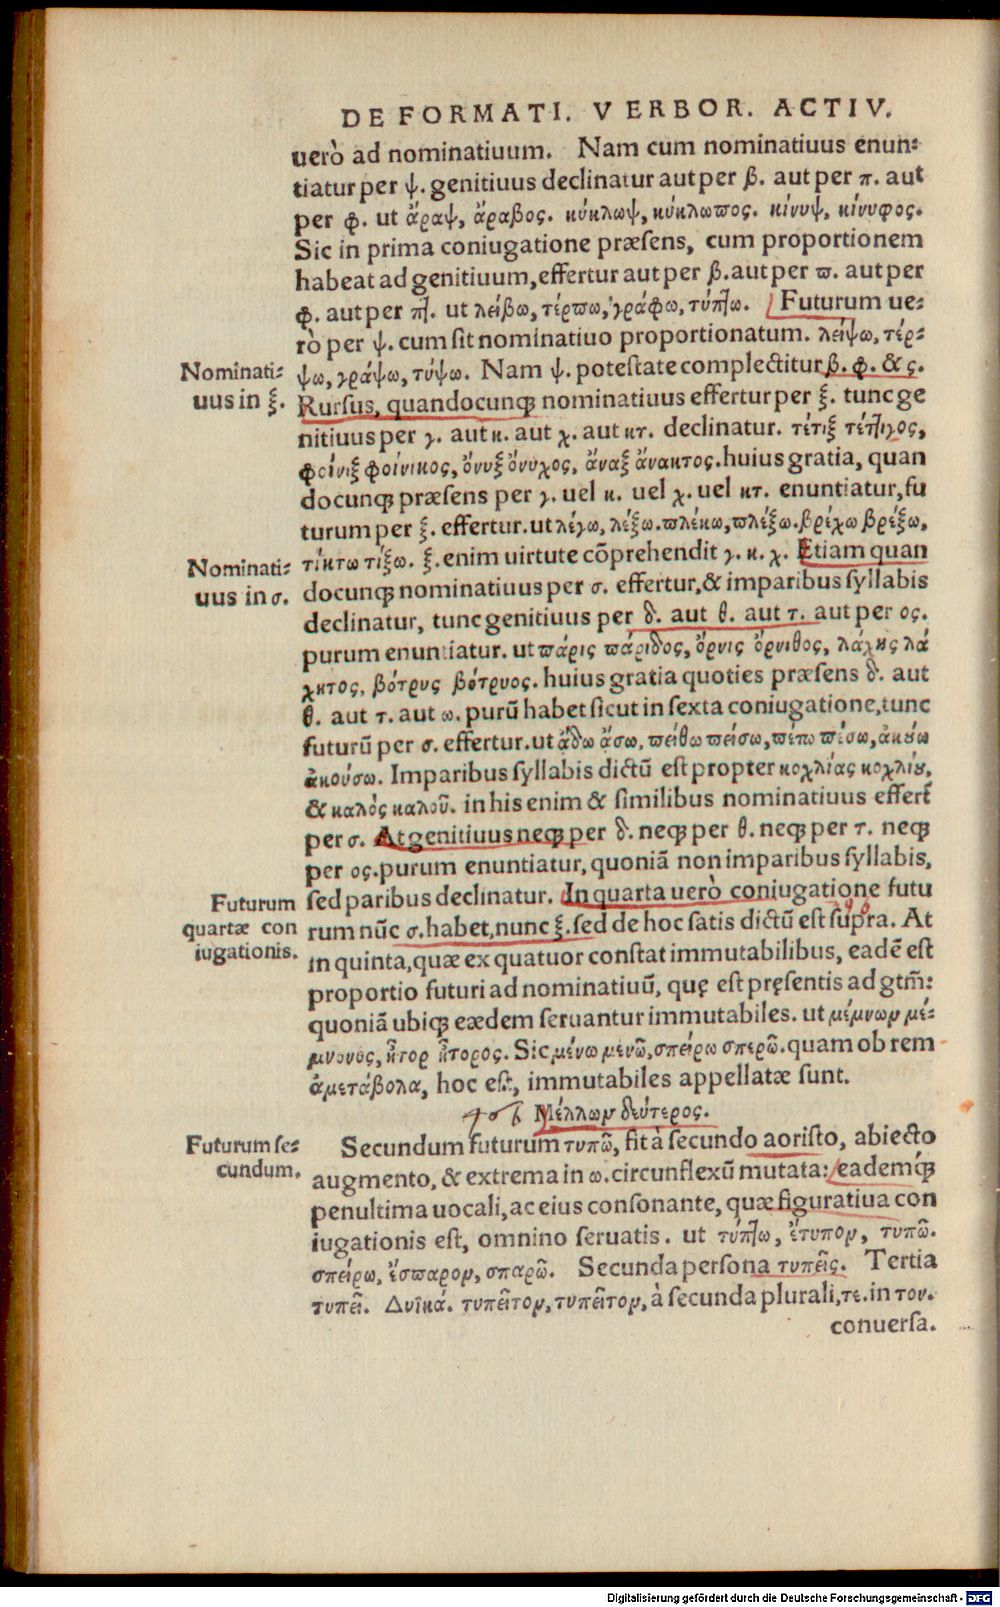 DE FORMATI. VERBOR. ACTIV.
uerò ad nominatiuum. Nam cum nominatiuus enun-
tiatur per ψ. genitiuus declinatur aut per β. aut per π. aut
per φ. ut ἄραψ, ἄραβος. κύκλωψ, κύκλωπος. κίνυψ, κίνυφος.
Sic in prima coniugatione præsens, cum proportionem
habeat ad genitiuum, effertur aut per β. aut per π. aut per
φ. aut per πτ. ut λείβω, τέρπω, γράφω, τύπτω. Futurum ue-
rò per ψ. cum sit nominatiuo proportionatum. λείψω, τέρ-
Nominati-
uus in ξ.
ψω, γράψω, τύψω. Nam ψ. potestate complectitur β. φ. & ς.
Rursus, quandocunq; nominatiuus effertur per ξ. tunc ge
nitiuus per γ. aut κ. aut χ. aut κτ. declinatur. τέτιξ τέττιγος,
φοίνιξ φοίνικος, ὄνυξ ὄνυχος, ἄναξ ἄνακτος. huius gratia, quan
docunq; præsens per γ. uel κ. uel χ. uel κτ. enuntiatur, fu
turum per ξ. effertur. ut λέγω, λέξω. πλέκω, πλέξω. βρέχω βρέξω,
τίκτω τίξω. ξ. enim uirtute cõprehendit γ. κ. χ. Etiam quan
Nominati-
uus in σ.
docunq; nominatiuus per σ. effertur, & imparibus syllabis
declinatur, tunc genitiuus per δ. aut θ. aut τ. aut per ος.
purum enuntiatur. ut πάρις πάριδος, ὄρνις ὄρνιθος, λάχης λά
χητος, βότρυς βότρυος. huius gratia quoties præsens δ. aut
θ. aut τ. aut ω. purũ habet sicut in sexta coniugatione, tunc
futurũ per σ. effertur. ut ἄδω ἄσω, πείθω πείσω, πέτω πέσω, ἀκούω
ἀκούσω. Imparibus syllabis dictũ est propter κοχλίας κοχλίου,
& καλὸς καλοῦ. in his enim & similibus nominatiuus effert̃
per σ. At genitiuus neq; per δ. neq; per θ. neq; per τ. neq;
per ος. purum enuntiatur, quoniã non imparibus syllabis,
Futurum
quartæ con
iugationis.
sed paribus declinatur. In quarta uerò coniugatione futu
rum nũc σ. habet, nunc ξ. sed de hoc satis dictũ est supra. At
in quinta, quæ ex quatuor constat immutabilibus, eadẽ est
proportio futuri ad nominatiuũ, quę est pręsentis ad gtm̃:
quoniã ubiq; eædem seruantur immutabiles. ut μέμνων μέ-
μνονος, ἧτορ ἧτορος. Sic μένω μενῶ, σπείρω σπερῶ. quam ob rem
ἀμετάβολα, hoc est, immutabiles appellatæ sunt.
Μέλλων δεύτερος.
Futurum se-
cundum.
Secundum futurum τυπῶ, fit à secundo aoristo, abiecto
augmento, & extrema in ω. circunflexũ mutata: eademq́;
penultima uocali, ac eius consonante, quæ figuratiua con
iugationis est, omnino seruatis. ut τύπτω, ἔτυπον, τυπῶ.
σπείρω, ἔσπαρον, σπαρῶ. Secunda persona τυπεῖς. Tertia
τυπεῖ. Δυϊκά. τυπεῖτον, τυπεῖτον, à secunda plurali, τε. in τον.
conuersa.
Digitalisierung gefördert durch die Deutsche Forschungsgemeinschaft - DFG